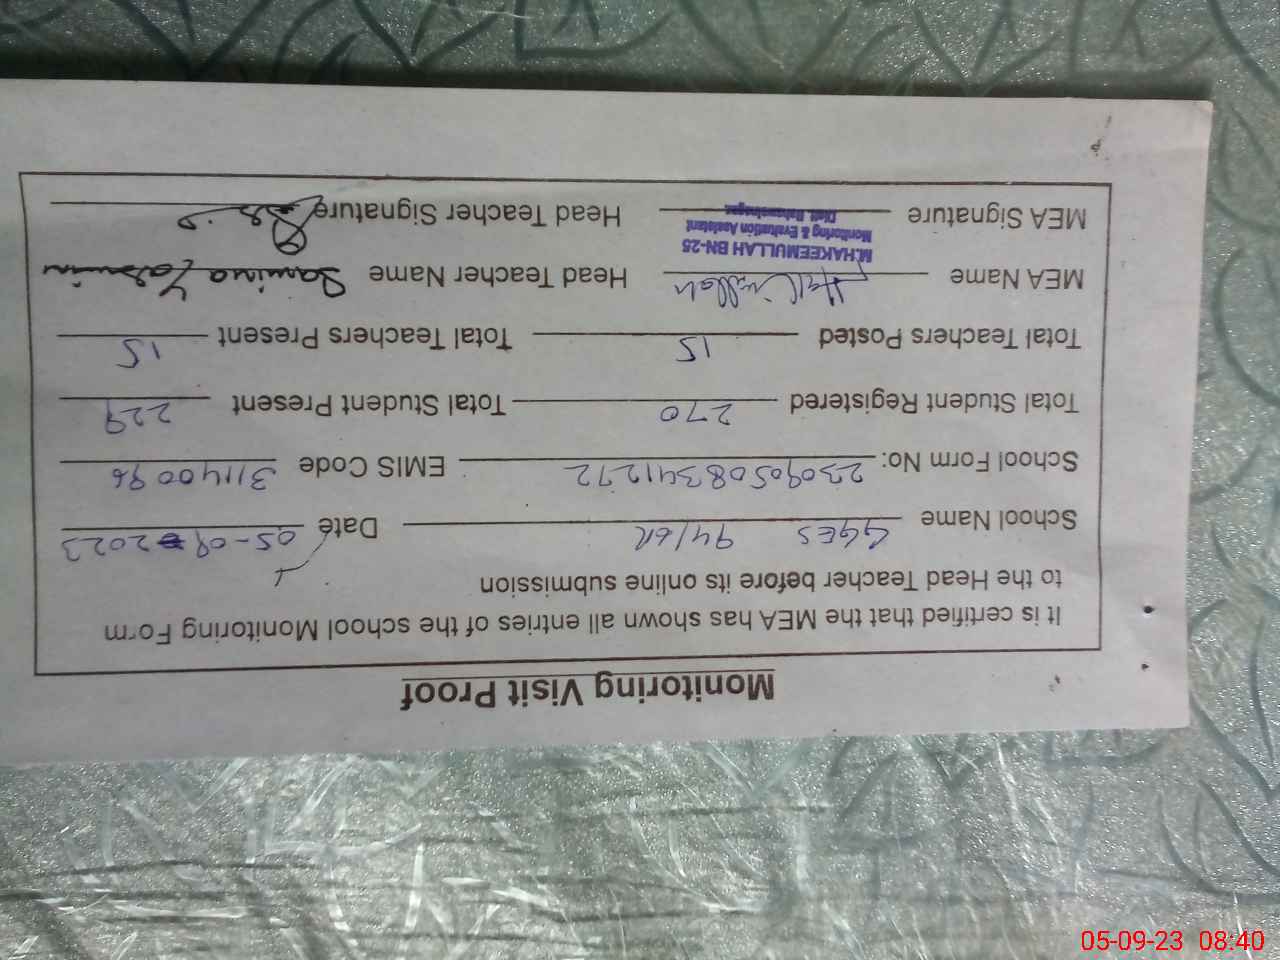 Monitoring Visit Proof
It is certified that the MEA has shown all entries of the school Monitoring Form
to the Head Teacher before its online submission
School Name GGES 94/6R Date 05-09-2023
School Form No: 230905083411272 EMIS Code 31140096
Total Student Registered 270 Total Student Present 229
Total Teachers Posted 15 Total Teachers Present 15
MEA Name Head Teacher Name Samina Yasmin
M.HAKEEMULLAH BN-25
Monitoring & Evaluation Assistant
Distt. Bahawalnagar
MEA Signature Head Teacher Signature
05-09-23 08:40